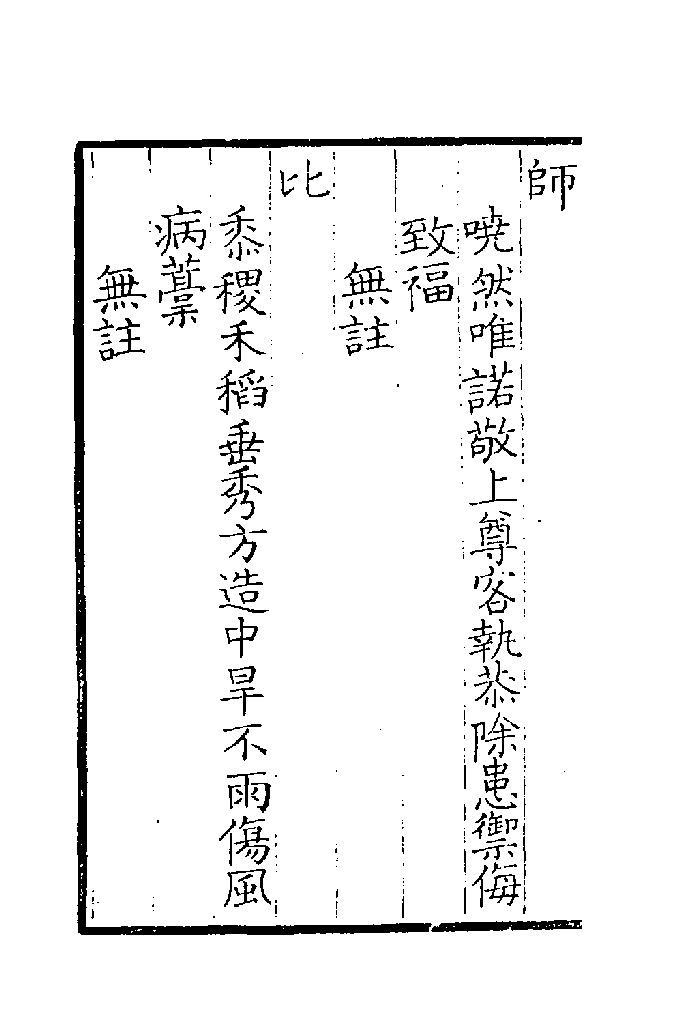 師
嘵然唯諾敬上尊客執恭除患禦侮
致福
無註
比
黍稷禾稻垂秀方造中旱不雨傷風
病藁
無註